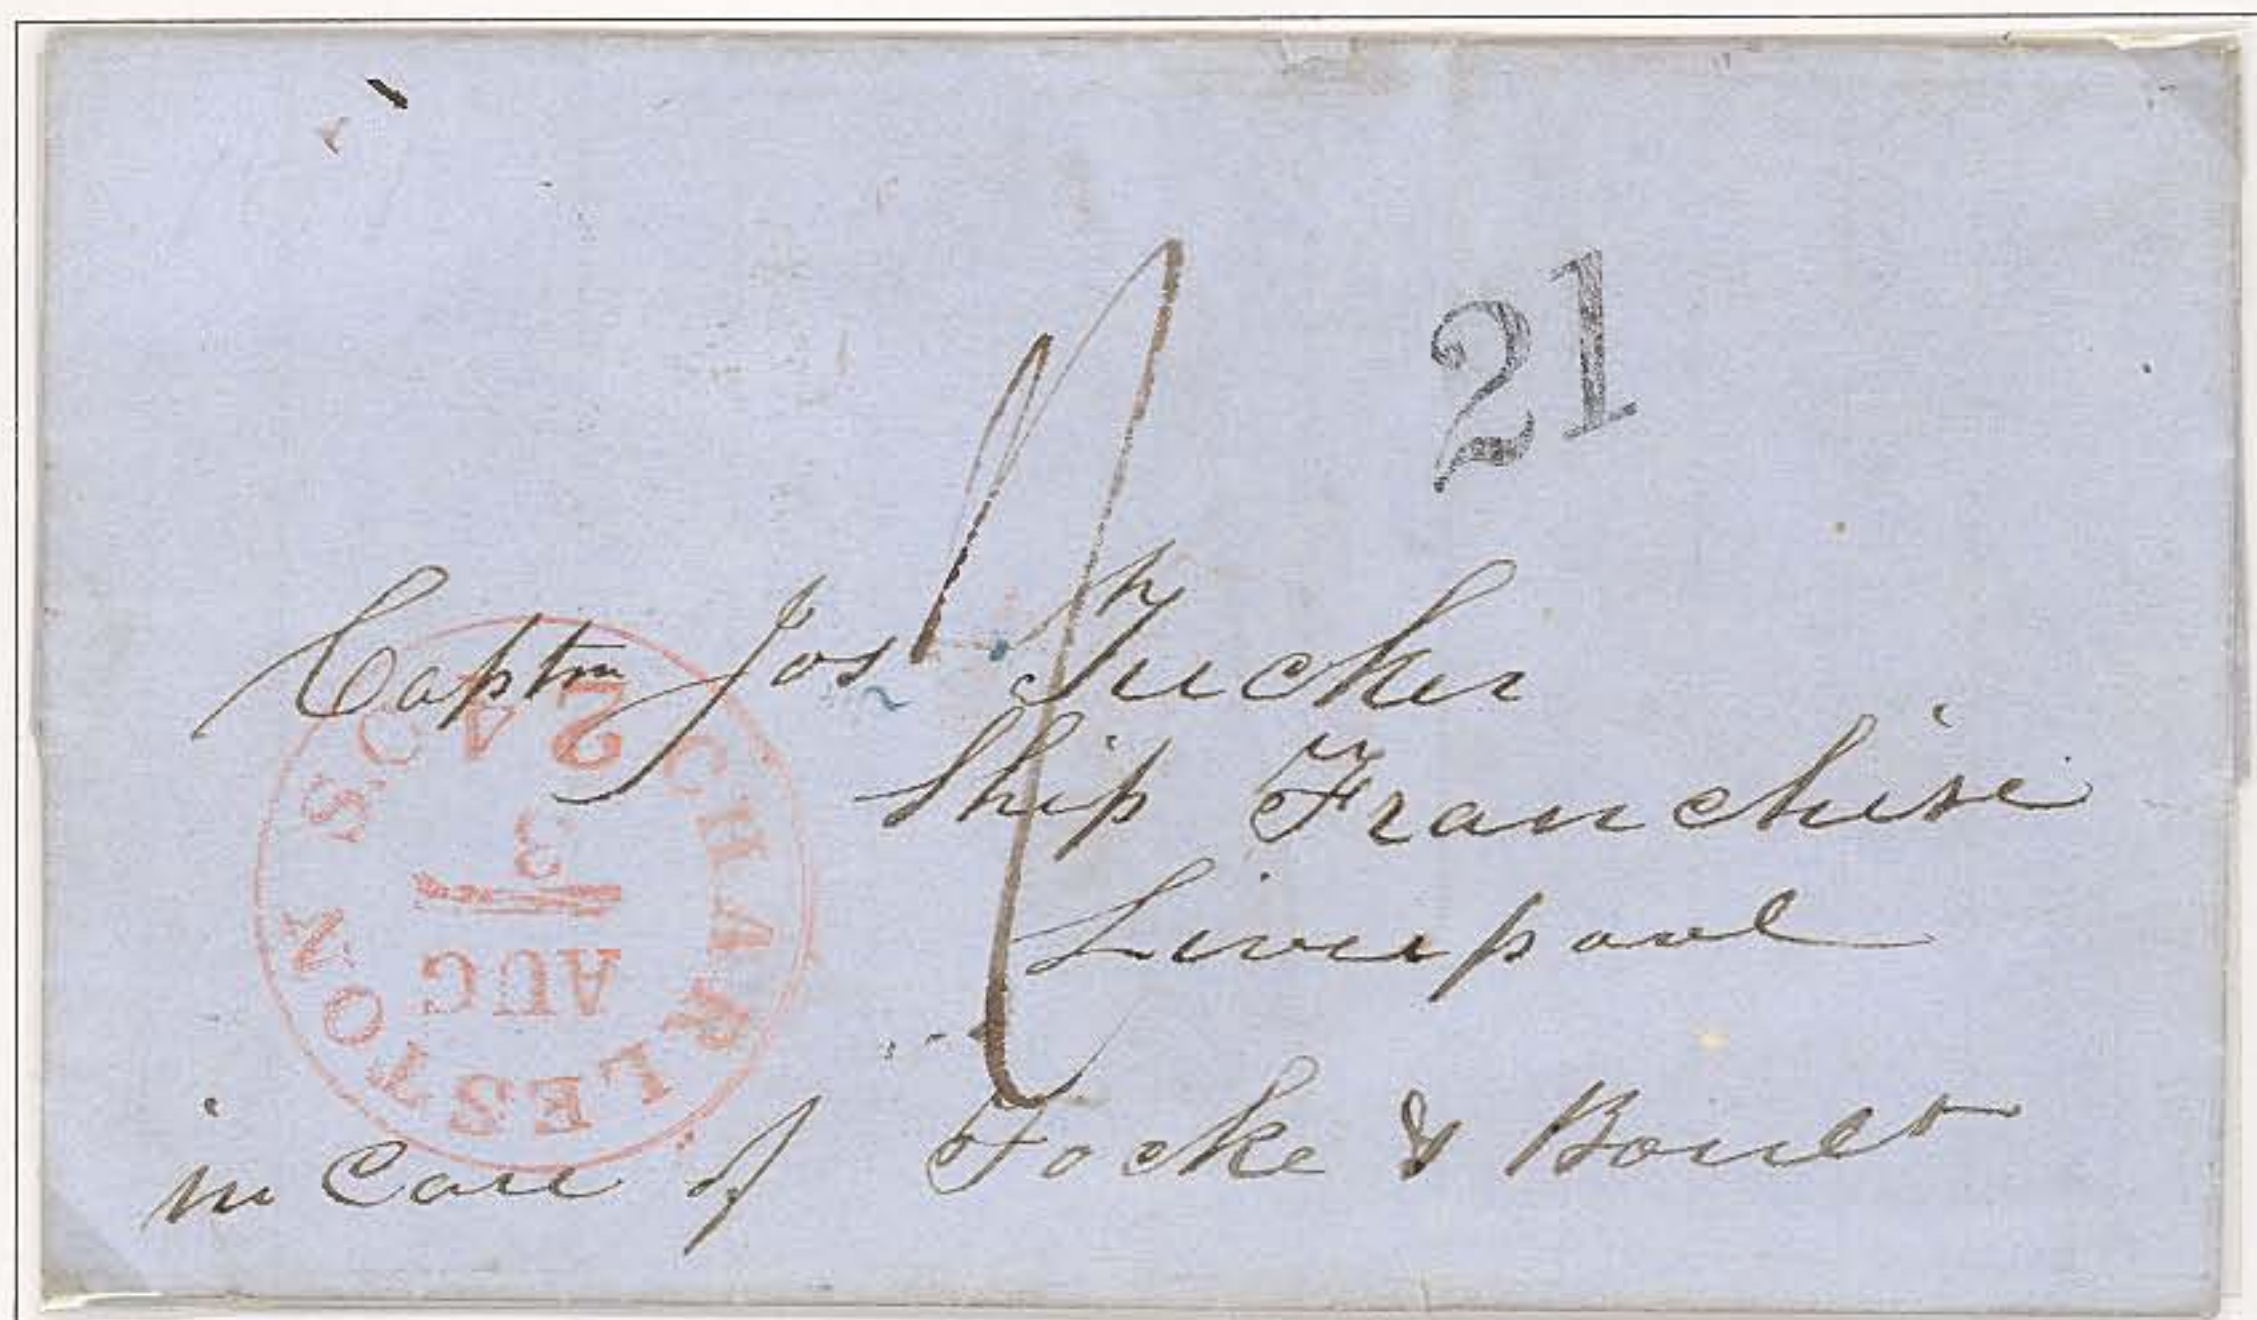 21
Captn Jos Tucker
Ship Franchise
Liverpool
in Care of Focke & Boult
CHARLESTON S.C.
AUG
3
24